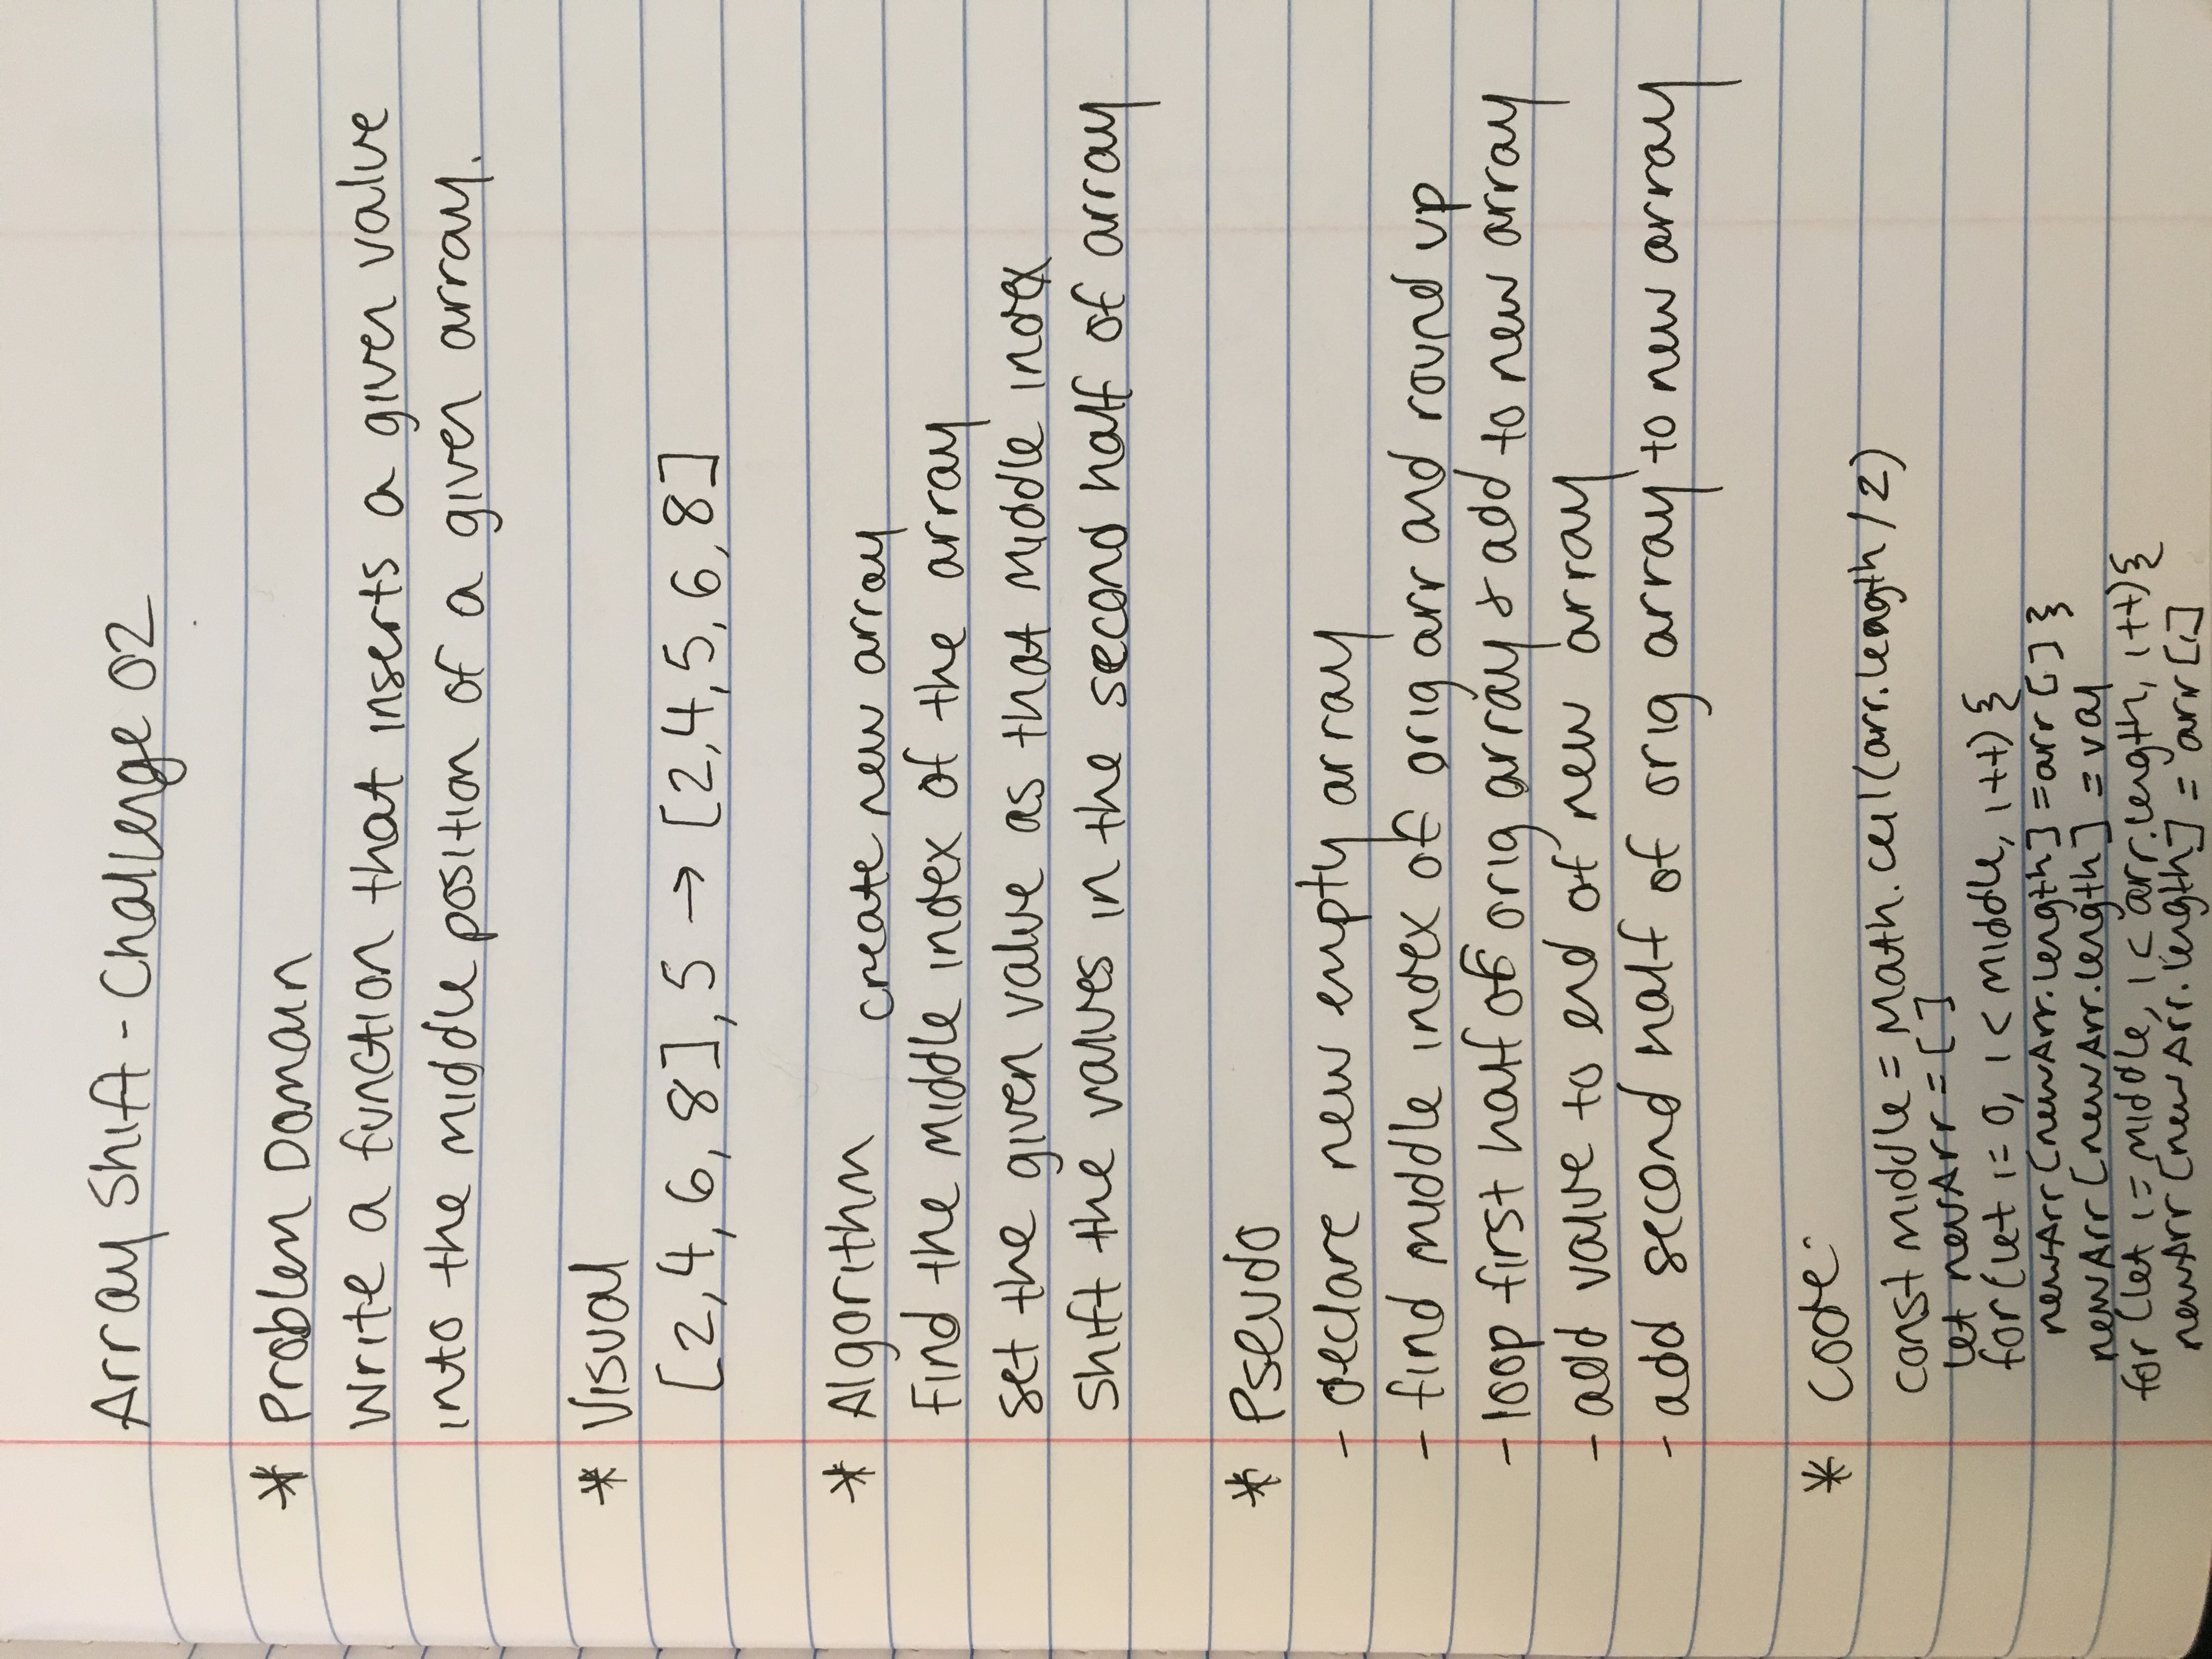 Array Shift - Challenge 02
* Problem Domain
Write a function that inserts a given value
into the middle position of a given array.
* Visual
[2,4,6,8],5 → [2,4,5,6,8]
* Algorithm create new array
Find the middle index of the array
set the given value as that middle index
shift the values in the second half of array
* Pseudo
- declare new empty array
- find middle index of orig arr and round up
- loop first half of orig array & add to new array
- add value to end of new array
- add second half of orig array to new array
* Code
const middle = Math.ceil(arr.length/2)
let newArr = []
for(let i=0, i<middle, i++){
newArr[newArr.length]=arr[i]}
newArr[newArr.length] = val
for(let i=middle, i<arr.length, i++){
newArr[newArr.length] = arr[i]